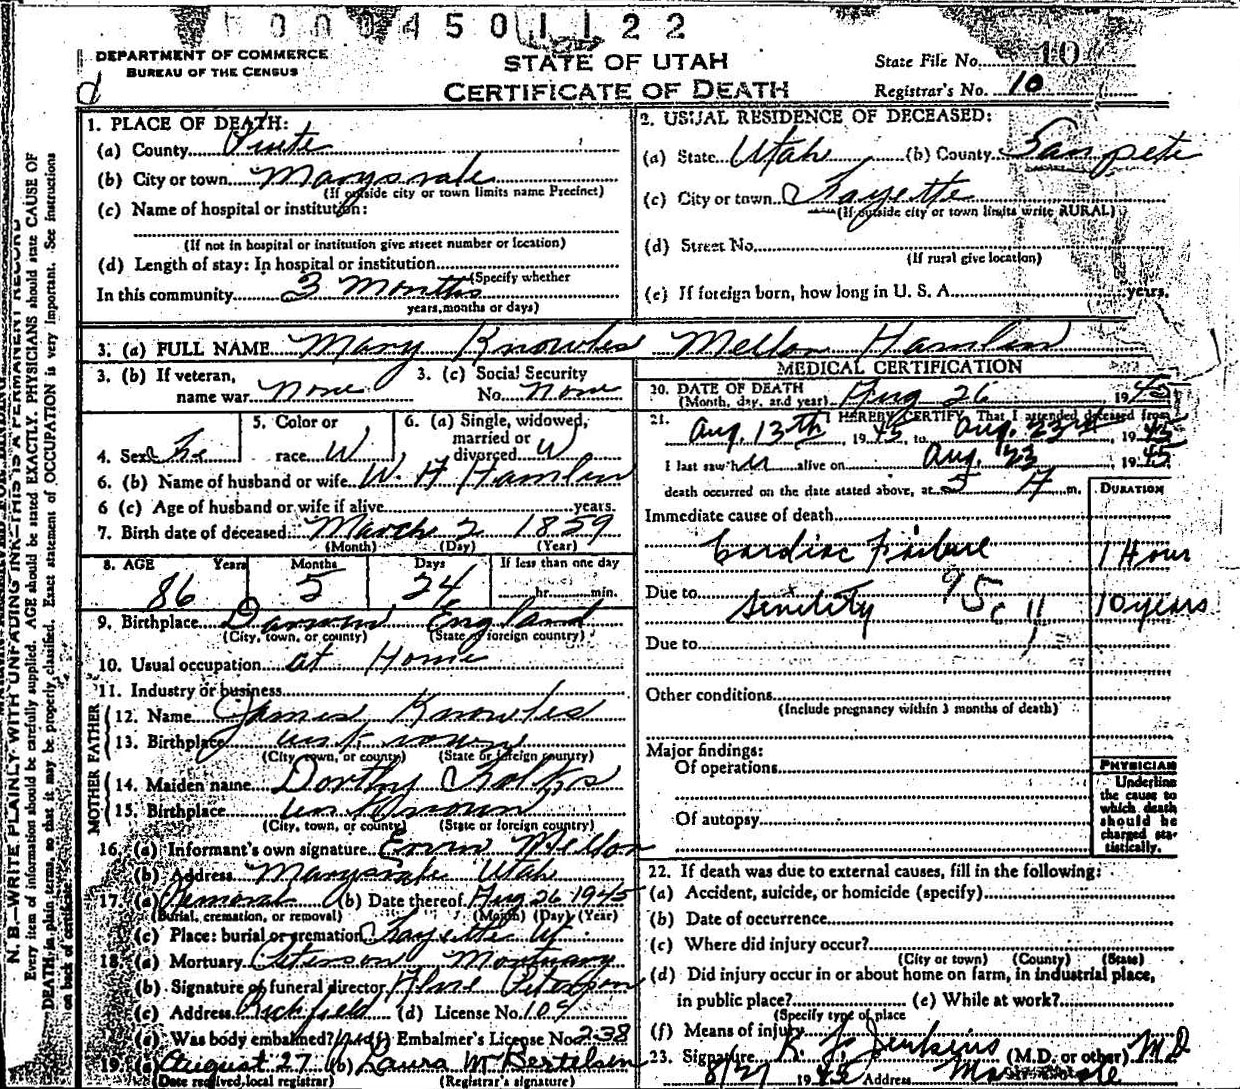 0004501122
DEPARTMENT OF COMMERCE
BUREAU OF THE CENSUS
STATE OF UTAH
CERTIFICATE OF DEATH
State File No. 10
Registrar's No. 10
d
1. PLACE OF DEATH:
(a) County Piute
(b) City or town Marysvale
(If outside city or town limits name Precinct)
(c) Name of hospital or institution:
(If not in hospital or institution give street number or location)
(d) Length of stay: In hospital or institution
(Specify whether
In this community 3 Months
years, months or days)
2. USUAL RESIDENCE OF DECEASED:
(a) State Utah (b) County Sanpete
(c) City or town Fayette
(If outside city or town limits write RURAL)
(d) Street No.
(If rural give location)
(e) If foreign born, how long in U. S. A. years.
3. (a) FULL NAME Mary Knowles Mellor Hamlin
3. (b) If veteran, name war None
3. (c) Social Security No. None
4. Sex Fe
5. Color or race W
6. (a) Single, widowed, married or divorced W
6. (b) Name of husband or wife W. H Hamlin
6 (c) Age of husband or wife if alive years.
7. Birth date of deceased: March 2 1859
(Month) (Day) (Year)
8. AGE Years Months Days If less than one day
86 5 24 hr. min.
9. Birthplace England
(City, town, or county) (State or foreign country)
10. Usual occupation at Home
11. Industry or business
FATHER
12. Name James Knowles
13. Birthplace unknown
(City, town, or county) (State or foreign country)
MOTHER
14. Maiden name Dorthy
15. Birthplace unknown
(City, town, or county) (State or foreign country)
16. (a) Informant's own signature Mellor
(b) Address Marysvale Utah
17. (a) Removal (b) Date thereof Aug 26 1945
(Burial, cremation, or removal) (Month) (Day) (Year)
(c) Place: burial or cremation Fayette Ut.
18. (a) Mortuary Peterson Mortuary
(b) Signature of funeral director Peterson
(c) Address Richfield (d) License No. 109
(e) Was body embalmed? (yes) Embalmer's License No. 238
19. (a) August 27 (b) Laura M Bertelsen
(Date received, local registrar) (Registrar's signature)
MEDICAL CERTIFICATION
20. DATE OF DEATH
(Month, day, and year) Aug 26 1945
21. I HEREBY CERTIFY, That I attended deceased from
Aug. 13th, 1945, to Aug. 23rd, 1945
I last saw her alive on Aug. 23, 1945
death occurred on the date stated above, at 5 A m.
DURATION
Immediate cause of death
Cardiac Failure 1 Hour
Due to Senility 95c 10 years
Due to
Other conditions
(Include pregnancy within 3 months of death)
Major findings:
Of operations
Of autopsy
PHYSICIAN
Underline the cause to which death should be charged statistically.
22. If death was due to external causes, fill in the following:
(a) Accident, suicide, or homicide (specify)
(b) Date of occurrence
(c) Where did injury occur?
(City or town) (County) (State)
(d) Did injury occur in or about home on farm, in industrial place,
in public place? (e) While at work?
(Specify type of place
(f) Means of injury
23. Signature Jenkins (M.D. or other) MD
8/27 1945 Address Marysvale
N. B.—WRITE PLAINLY WITH UNFADING INK—THIS IS A PERMANENT RECORD
Every item of information should be carefully supplied. AGE should be stated EXACTLY. PHYSICIANS should state CAUSE OF
DEATH in plain terms, so that it may be properly classified. Exact statement of OCCUPATION is very important. See instructions
on back of certificate.